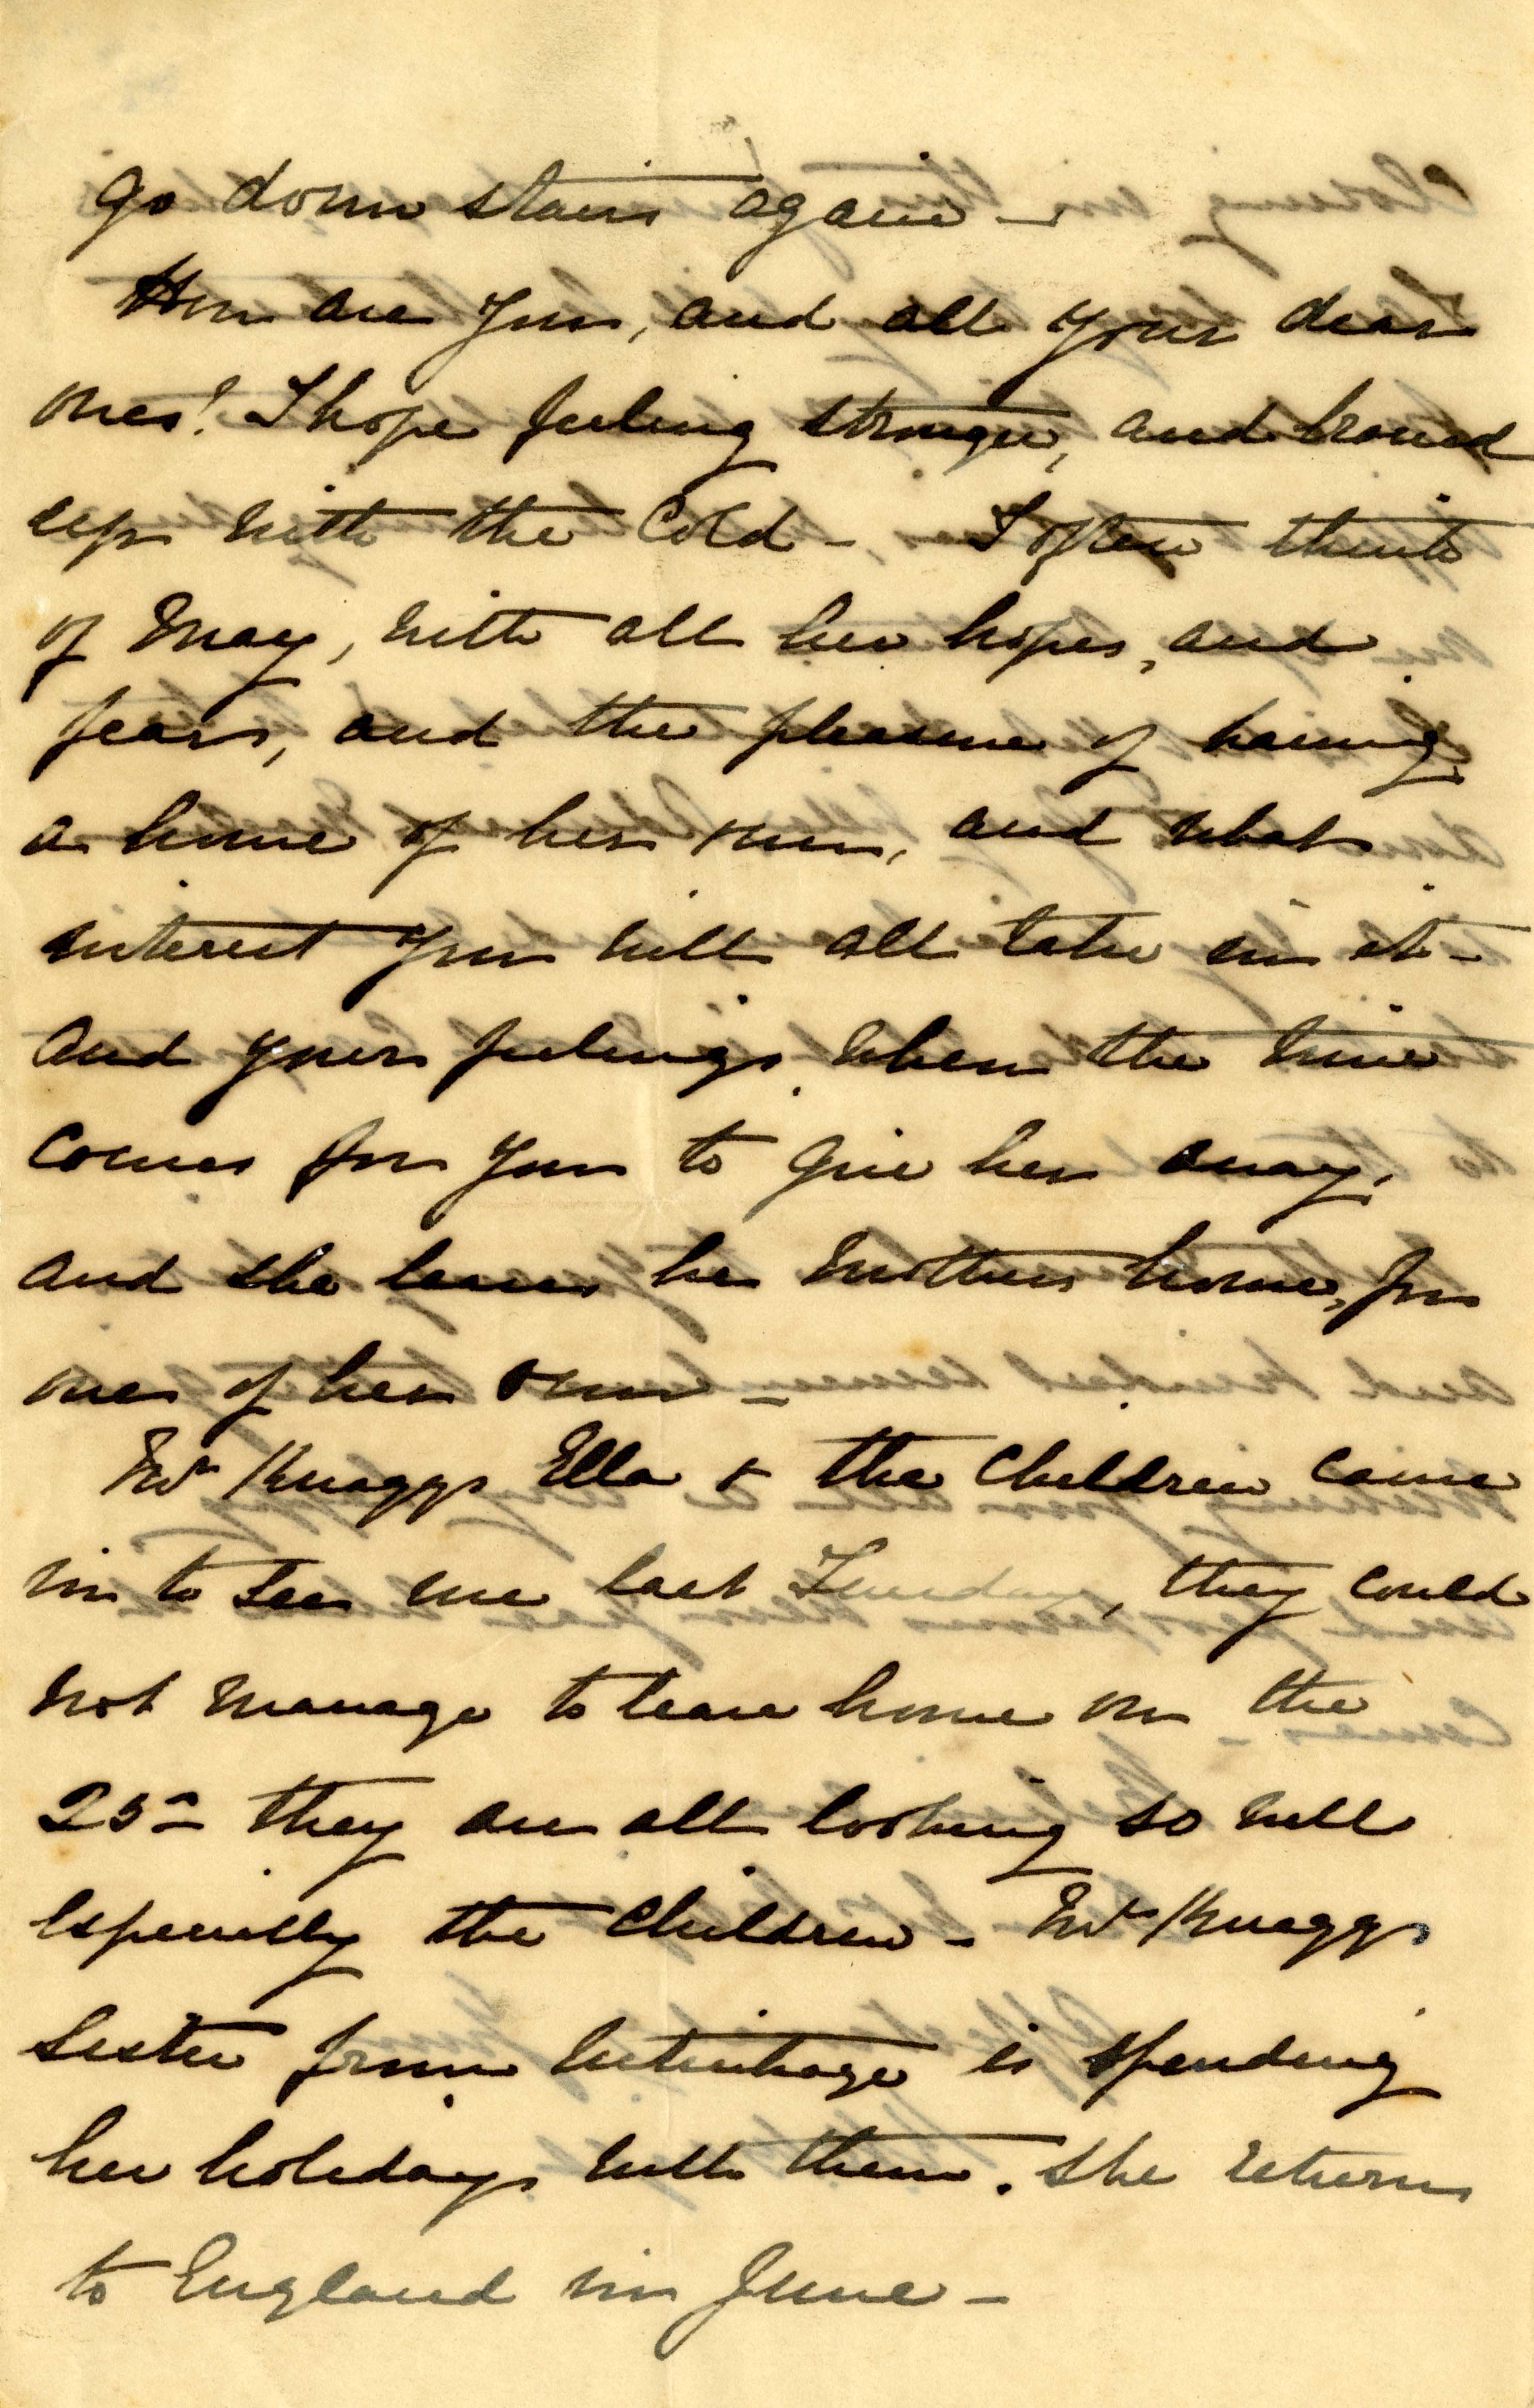 go down stairs again —
How are you, and all your dear
ones? I hope feeling stronger, and braced
up with the cold — I often think
of May, with all her hopes, and
fears, and the pleasure of having
a home of her own, and what
interest you will all take in it —
and your feelings when the time
comes for you to give her away,
and she leaves her mothers home, for
one of her own —
Mr Knaggs Ella & the children came
in to see me last Tuesday, they could
not manage to leave home on the
25th they are all looking so well
especially the children — Mr Knaggs
sister from Uitenhage is spending
her holidays with them. She returns
to England in June —